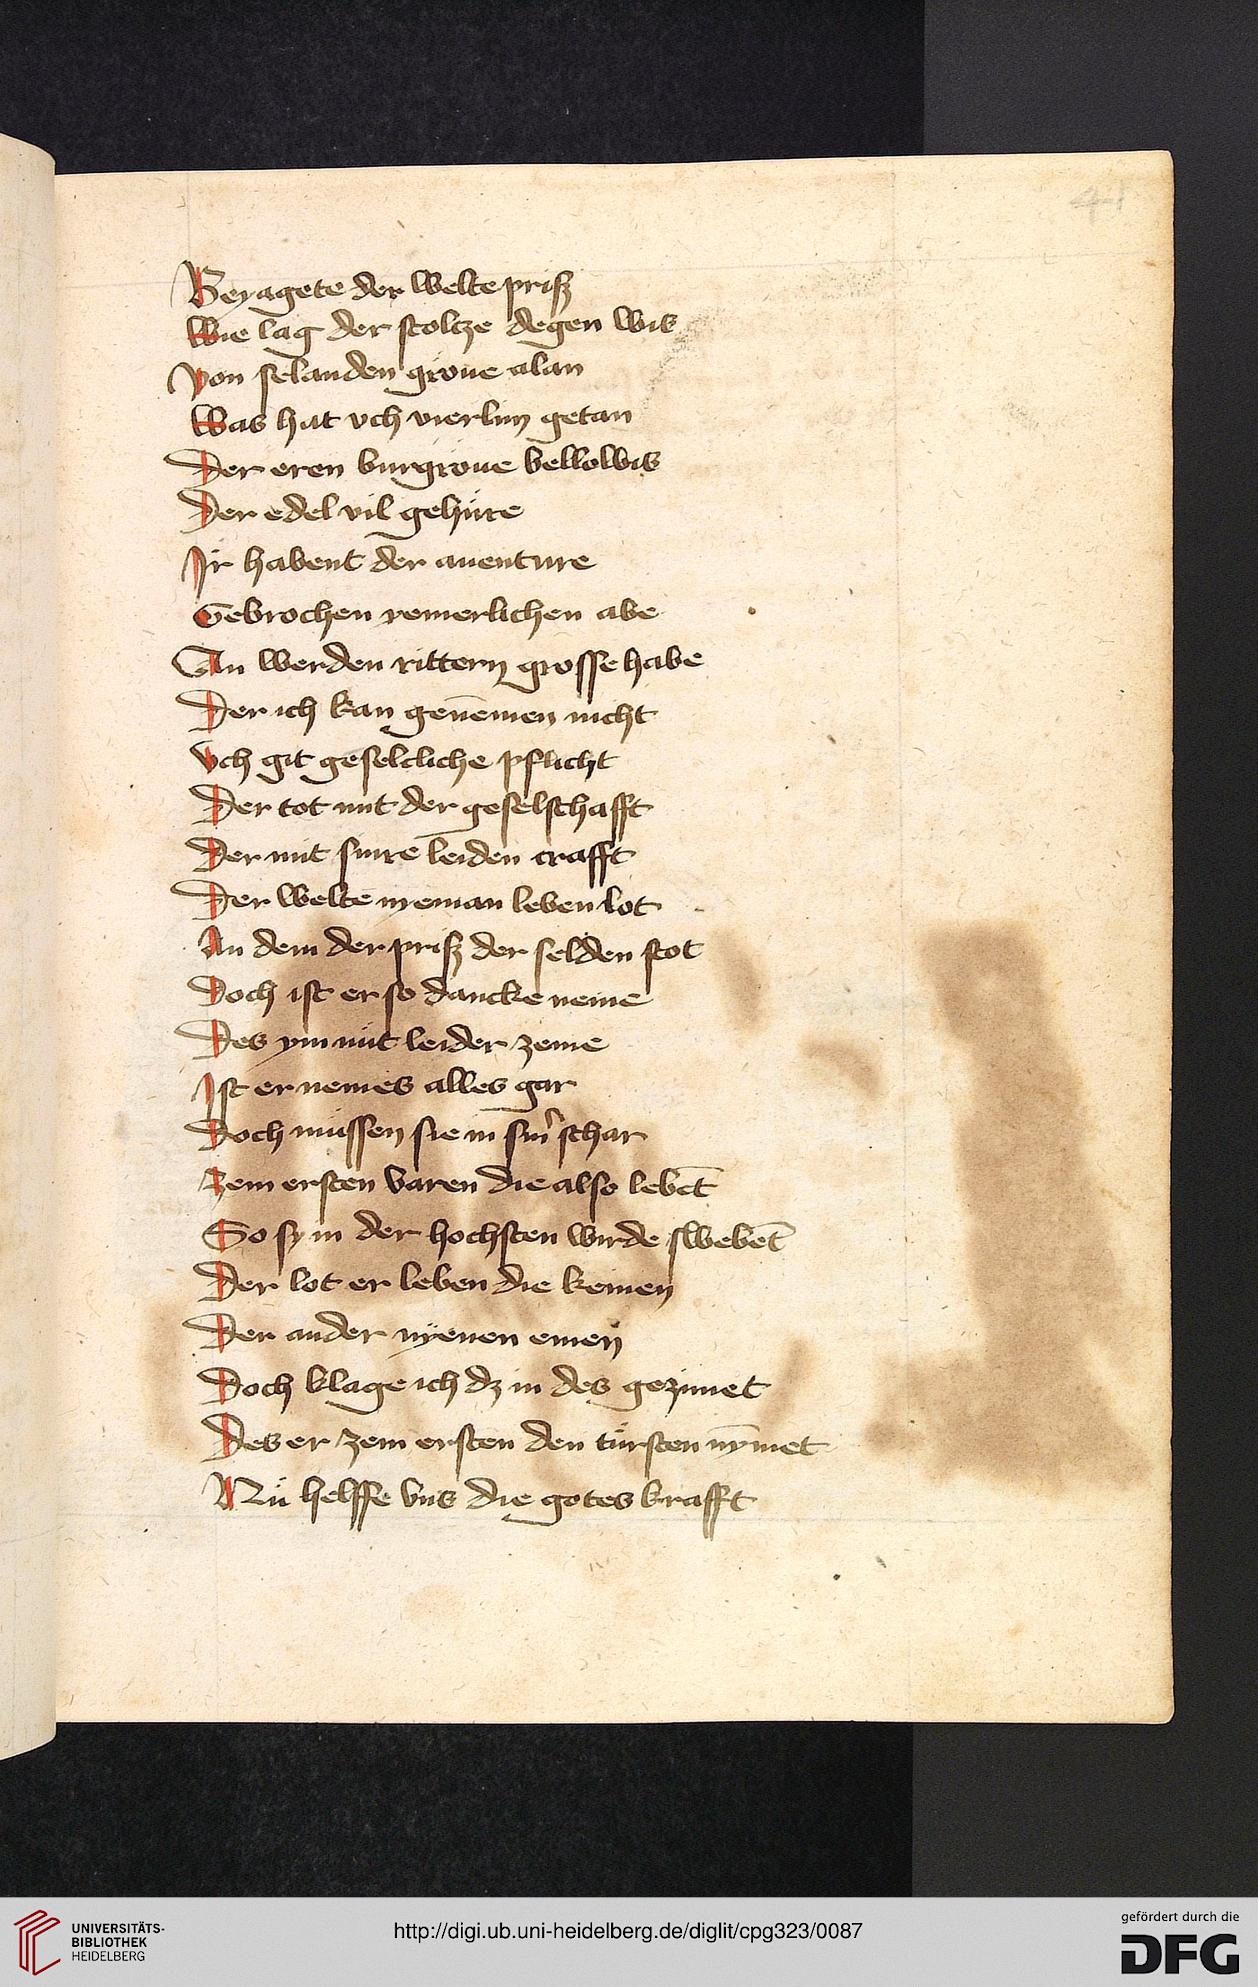 41
Beyagete der welte prisz
Wie lag der stoltze degen wis
Von selanden grove alan
Was hat vch vierlim getan
Der eren burgrove bellolwis
Der edel vil gehüre
Ir habent der auenture
Gebrochen yemerlichen abe
An werden rittern grosse habe
Der ich kan genēmen nicht
Vch git geselcliche pflicht
Der tot mit der geselschafft
Der mit sinre leiden crafft
Der welte nyeman leben lot
An dem der prisz der selden stot
Doch ist er so dancke neme
Des ym nüt leider zeme
Ist er nem es alles gar
Doch müssen sie in sinr schar
Zem ersten varen die also lebēt
So sy in der hochsten wirde swebēt
Der lot er leben die keinen
Der ander nyenen einen
Doch klage ich dz in des gezimet
Des er zem ersten den türsten nȳmet
Nü helffe vns die gotes krafft
UNIVERSITÄTS-
BIBLIOTHEK
HEIDELBERG
http://digi.ub.uni-heidelberg.de/diglit/cpg323/0087
gefördert durch die
DFG